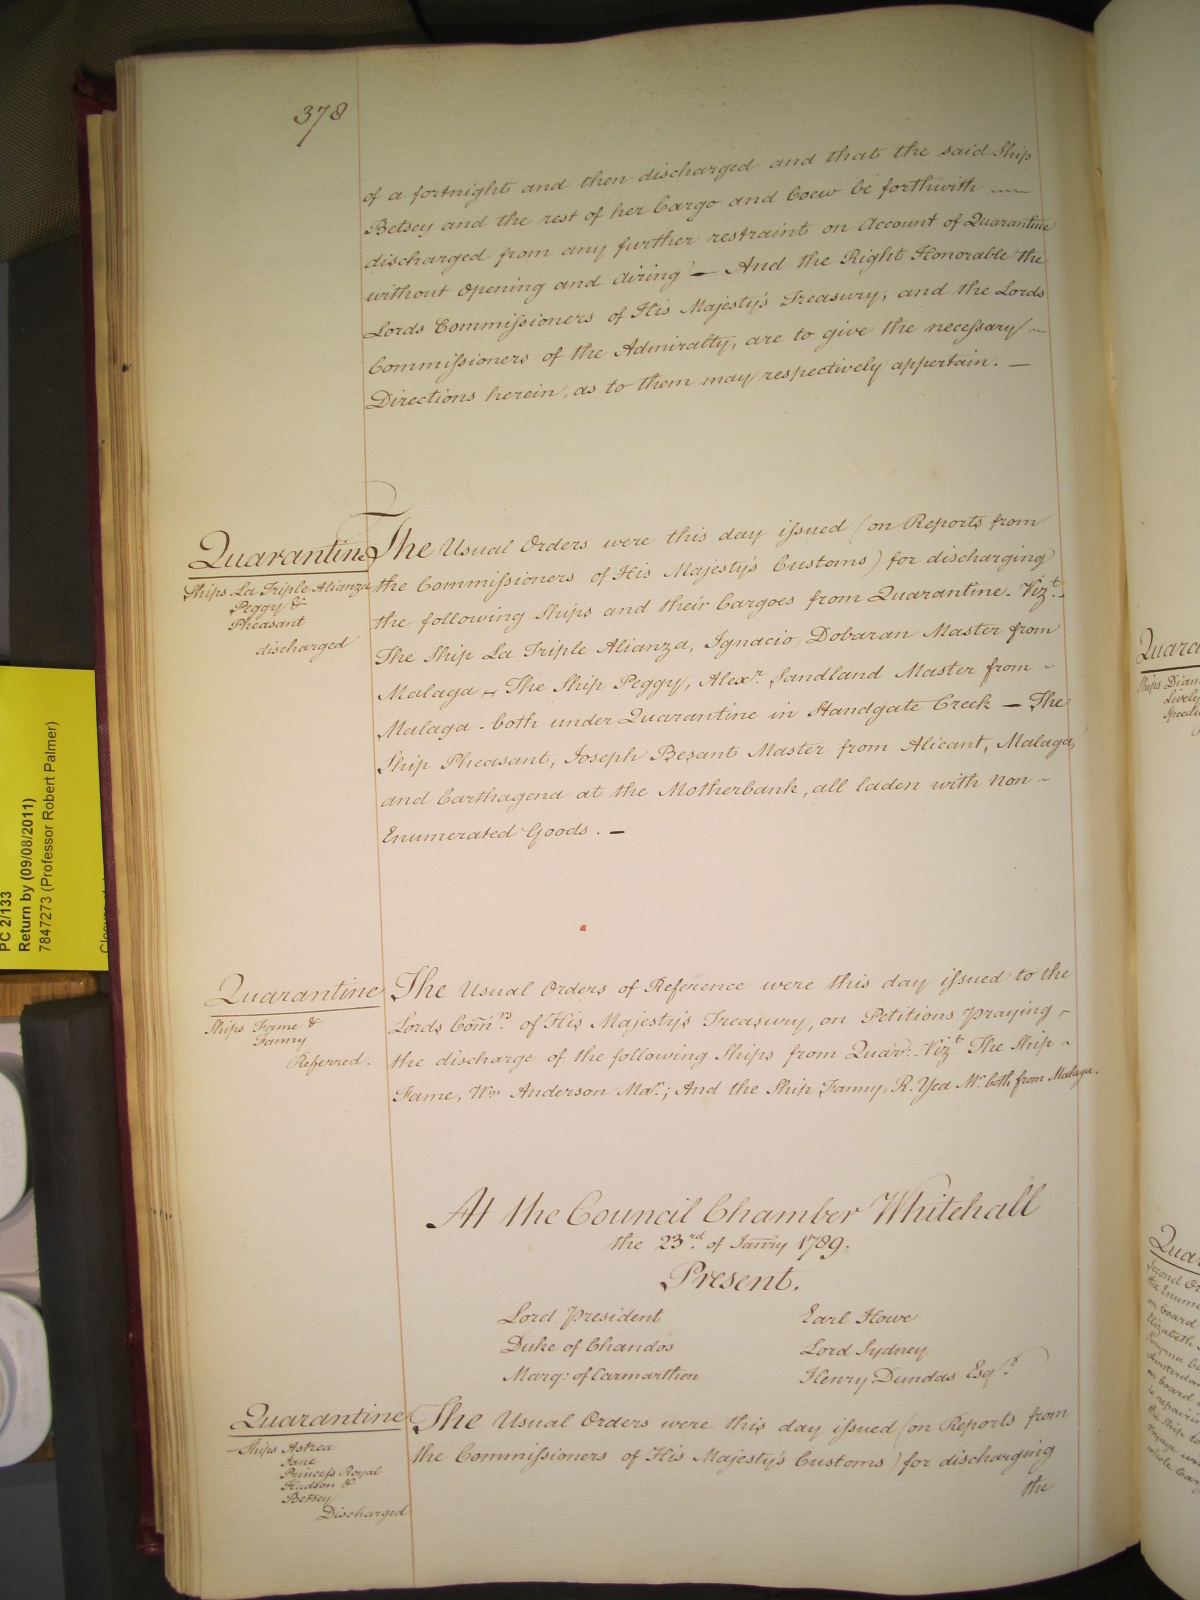 378
of a fortnight and then discharged and that the said Ship
Betsey and the rest of her Cargo and Coew be forthwith
discharged from any further restraint on Account of Quarantine
without Opening and Airing — And the Right Honorable the
Lords Commissioners of His Majesty's Treasury, and the Lords
Commissioners of the Admiralty, are to give the necessary
Directions herein, as to them may respectively appertain. —
Quarantine
Ships La Triple Alianza
Peggy &
Pheasant
discharged
The Usual Orders were this day issued (on Reports from
the Commissioners of His Majesty's Customs) for discharging
the following Ships and their Cargoes from Quarantine. Vizt.
The Ship La Triple Alianza, Ignacio Dobaran Master from
Malaga — The Ship Peggy, Alexr. Sandland Master from
Malaga - both under Quarantine in Standgate Creek — The
Ship Pheasant, Joseph Besant Master from Alicant, Malaga,
and Carthagena at the Motherbank, all laden with Non-
Enumerated Goods. —
Quarantine
Ships Fame &
Fanny
Referred.
The Usual Orders of Reference were this day issued to the
Lords Comrs. of His Majesty's Treasury, on Petitions praying
the discharge of the following Ships from Quarn. Vizt. The Ship
Fame, Wm. Anderson Mar.; And the Ship Fanny, R. Yea Mr. both from Malaga.
At the Council Chamber Whitehall
the 23rd. of Janry 1789.
Present.
Lord President
Earl Howe
Duke of Chandos
Lord Sydney
Marqs. of Carmarthen
Henry Dundas Esqr.
Quarantine
Ships Astrea
Jane
Princess Royal
Hudson &
Betsey
Discharged
The Usual Orders were this day issued (on Reports from
the Commissioners of His Majesty's Customs) for discharging
the
PC 2/133
Return by (09/08/2011)
7847273 (Professor Robert Palmer)